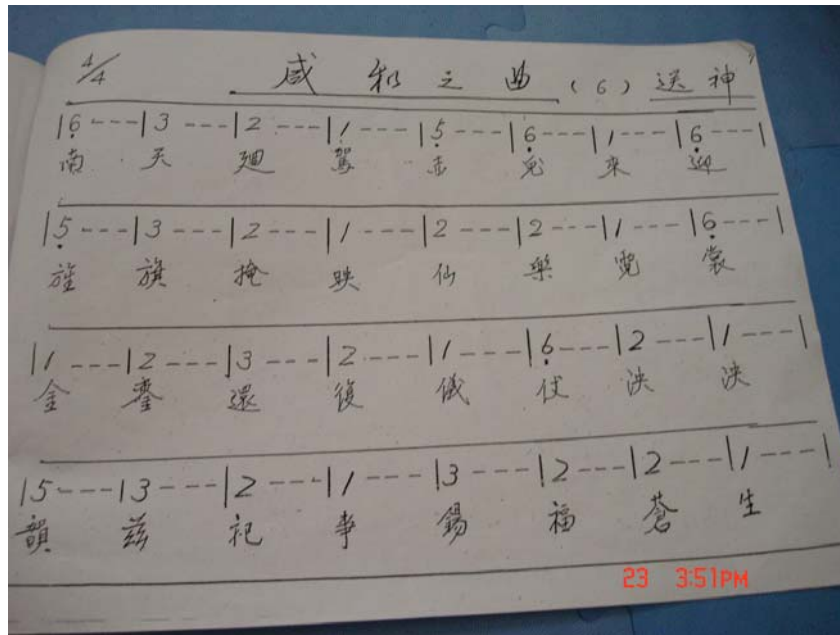 4/4 咸和之曲 (6) 送神
|6̣---|3---|2---|1---|5̣---|6̣---|1---|6̣---|
南 天 廻 駕 赤 兔 來 迎
|5̣---|3---|2---|1---|2---|2---|1---|6̣---|
旌 旗 掩 映 仙 樂 霓 裳
|1---|2---|3---|2---|1---|6̣---|2---|1---|
金 鑾 還 復 儀 仗 泱 泱
|5---|3---|2---|1---|3---|2---|2---|1---|
韻 茲 祀 事 錫 福 蒼 生
23 3:51PM